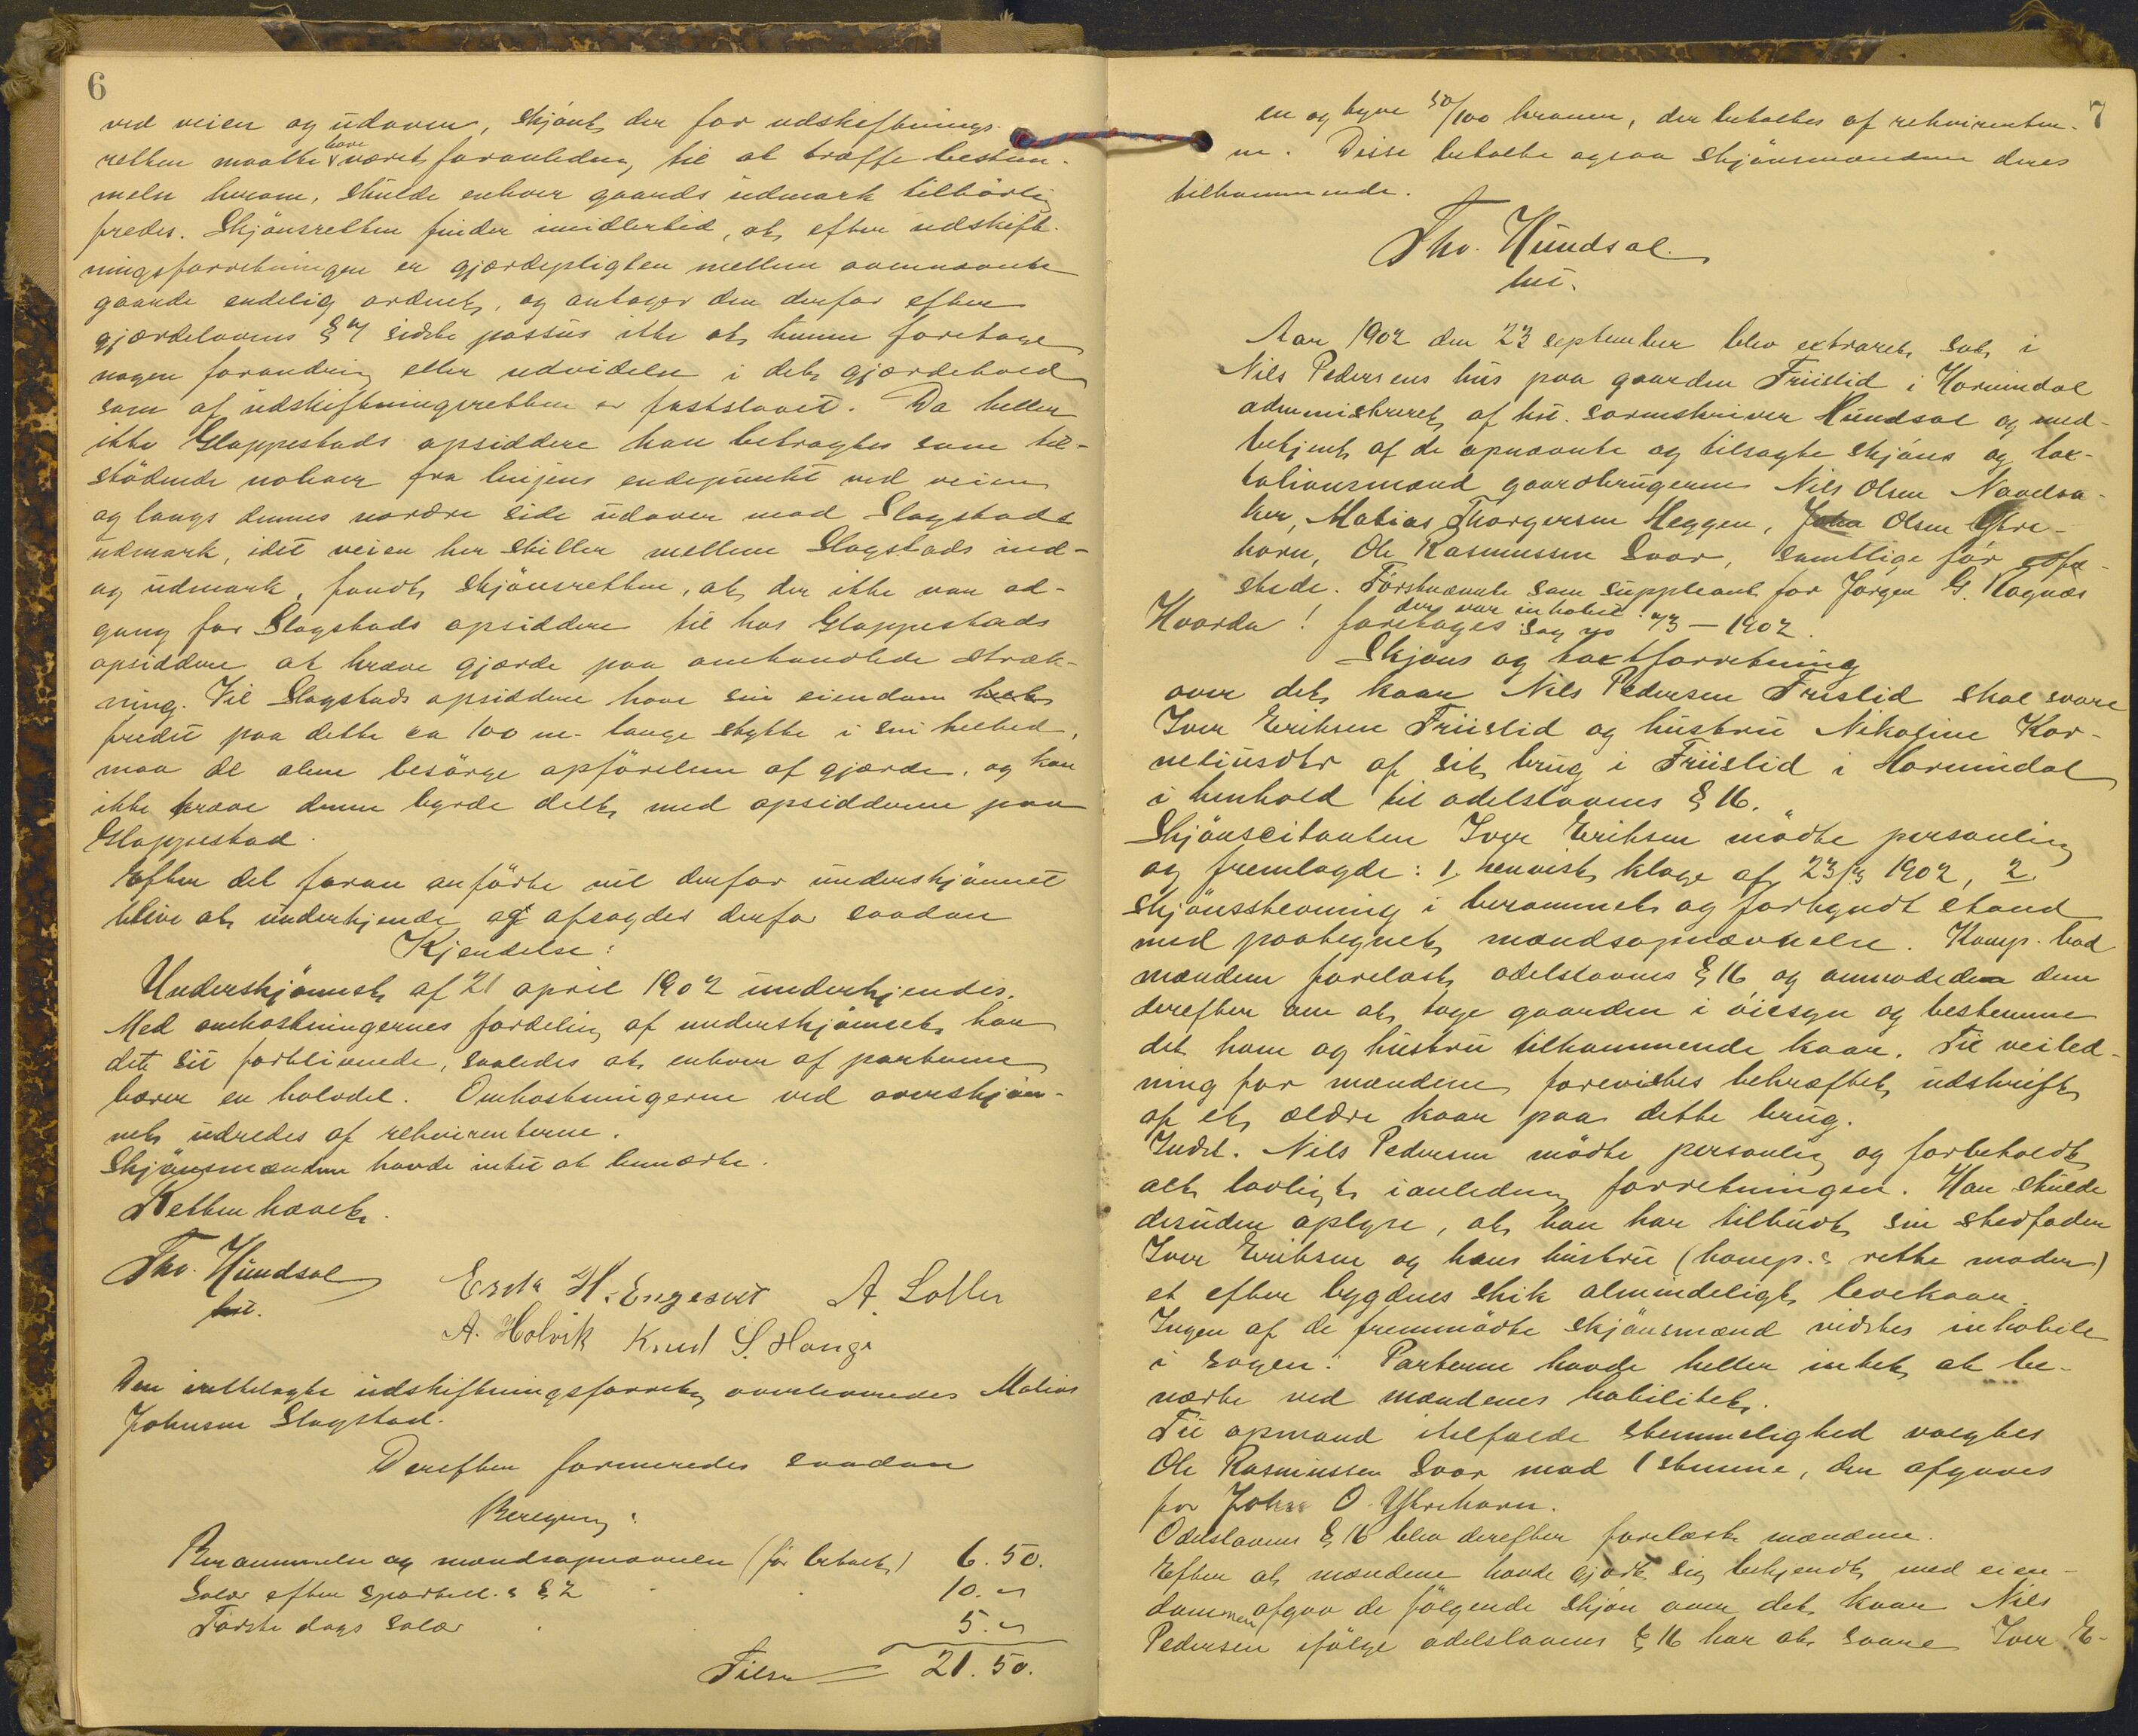 6
ved veien og udover, skjønt der for udskiftnings-
retten maatte have været foranledning til at træffe bestem-
melse herom, skulde enhver gaards udmark tilbørlig
fredes. Skjønsretten finder imidlertid, at efter udskift-
ningsforretningen er gjærdepligten mellem ovennævnte
gaarde endelig ordnet, og antager den derfor efter
gjærdelovens § 7 sidste passus ikke at kunne foretage
nogen forandring eller udvidelse i det gjærdehold
som af udskiftningsretten er fastslaaet. Da heller
ikke Gloppestads opsiddere kan betragtes som til-
stødende naboer fra linjens endepunkt ved veien
og langs dennes nordre side udover mod Slagstads
udmark, idet veien her skiller mellem Slagstads ind-
og udmark, fandt skjønsretten, at der ikke var ad-
gang for Slagstads opsiddere til hos Gloppestads
opsiddere at kræve gjærde paa omhandlede stræk-
ning. Vil Slagstads opsiddere have sin eiendom
fredet paa dette ca 100 m. lange stykke i sin helhed,
maa de alene besørge opførelsen af gjærde, og kan
ikke kræve denne byrde delt med opsidderne paa
Gloppestad.
Efter det foran anførte vil derfor underskjønnet
blive at underkjende og afsagdes derfor saadan
Kjendelse:
Underskjønnet af 21 april 1902 underkjendes.
Med omkostningernes fordeling af underskjønnet har
det sit forblivende, saaledes at enhver af parterne
bærer en halvdel. Omkostningerne ved overskjøn-
net udredes af rekvirenterne.
Skjønsmændene havde intet at bemærke.
Retten hævet.
Tho. Hundsal
kst.
Erik H. Engeset A. Lotter
A. Holvik Knud S. Hauge
Den irettelagte udskiftningsforretn. overleveredes Matias
Johnsen Slagstad.
Derefter formeredes saadan
Beregning:
Berammelse og mandsopnævnelse (før betalt) 6.50.
Salær efter sportell.s § 2 10.-
Første dags salær 5.-
Tils. 21.50.
7
en og tyve 50/100 kroner, der betaltes af rekvirenter-
ne. Disse betalte ogsaa skjønsmændene deres
tilkommende.
Tho. Hundsal
kst.
Aar 1902 den 23 september blev extraret sat i
Nils Pedersens hus paa gaarden Friislid i Hornindal
administreret af kst. sorenskriver Hundsal og med-
betjent af de opnævnte og tilsagte skjøns og tax-
tationsmænd gaardbrugerne Nils Olsen Navelsa-
ker, Matias Thorgersen Heggen, John Olsen Yttre-
horn, Ole Rasmussen Svor, samtlige før
stede. Førstnævnte som suppleant for Jørgen G. Kognæs
der var inhabil.
Hvorda! foretages sag no 73 – 1902.
Skjøns og taxtforretning
over det kaar Nils Pedersen Frislid skal svare
Iver Eriksen Friislid og hustru Nikoline Kor-
neliusdtr af sit brug i Friislid i Hornindal
i henhold til odelslovens § 16.
Skjønscitanten Iver Eriksen mødte personlig
og fremlagde: 1, henvist klage af 23/8 1902, 2,
skjønsstevning i berammet og forkyndt stand
med paategnet mandsopnævnelse. Komp. bad
mændene forelæst odelslovens § 16 og anmodede dem
derefter om at tage gaarden i øiesyn og bestemme
det ham og hustru tilkommende kaar. Til veiled-
ning for mændene forevistes bekræftet udskrift
af et ældre kaar paa dette brug.
Indst. Nils Pedersen mødte personlig og forbeholdt
alt lovligt i anledning forretningen. Han skulde
desuden oplyse, at han har tilbudt sin stedfader
Iver Eriksen og hans hustru (komp.s rette moder)
et efter bygdens skik almindeligt levekaar.
Ingen af de fremmødte skjønsmænd vidstes inhabile
i sagen. Parterne havde heller intet at be-
mærke ved mændenes habilitet.
Til opmand itilfælde stemmelighed valgtes
Ole Rasmussen Svor mod 1 stemme, der afgaves
for John O. Ytrehorn.
Odelslovens § 16 blev derefter forelæst mændene.
Efter at mændene havde gjort sig bekjendt med eien-
dommen afgav de følgende skjøn over det kaar Nils
Pedersen ifølge odelslovens § 16 har at svare Iver E-